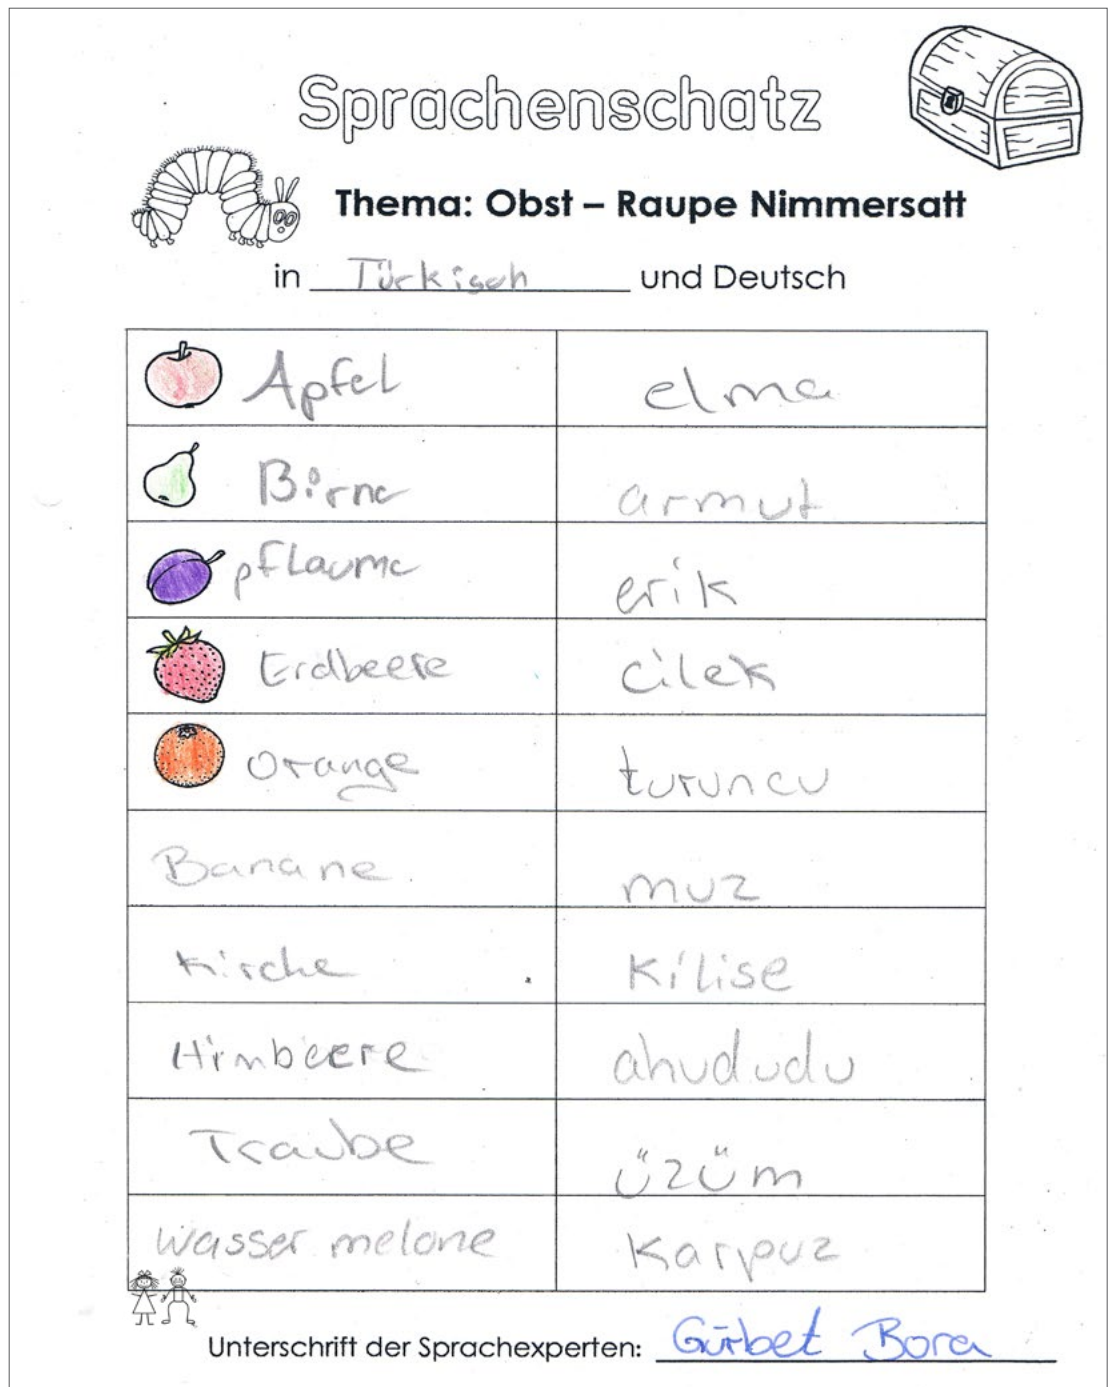 Sprachenschatz
Thema: Obst – Raupe Nimmersatt
in Türkisch und Deutsch
Apfel elma
Birne armut
pflaume erik
Erdbeere cilek
orange turuncu
Banane muz
Kirche Kilise
Himbeere ahududu
Traube üzüm
wasser melone Karpuz
Unterschrift der Sprachexperten: Gürbet Bora